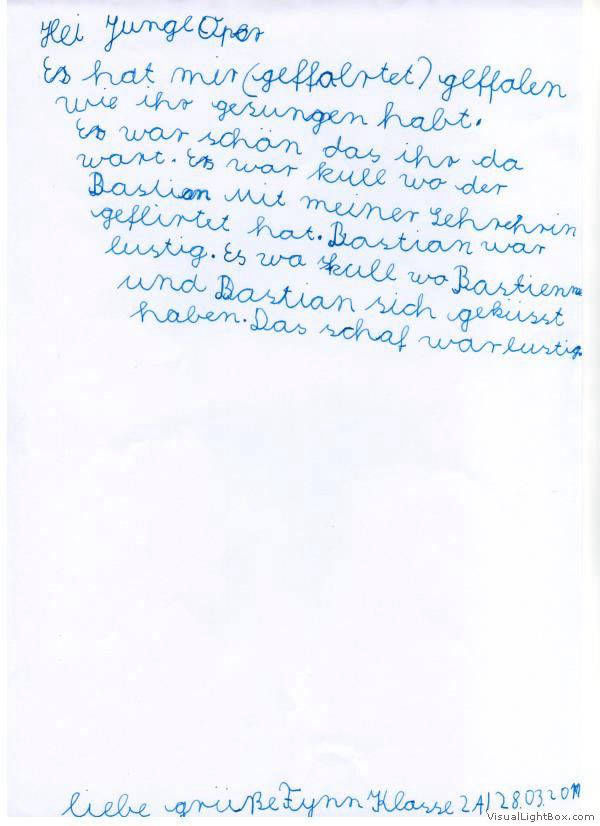 Hei Junge Oper
Es hat mir (geffalrtet) geffalen
wie ihr gesungen habt.
Es war schön das ihr da
wart. Es war kull wo der
Bastian Mit meiner Lehrehrin
geflirtet hat. Bastian war
lustig. Es wa kull wo Bastienne
und Bastian sich geküsst
haben. Das schaf war lustig.
liebe grüße Fynn Klasse 2A 28.03.2011
VisualLightBox.com